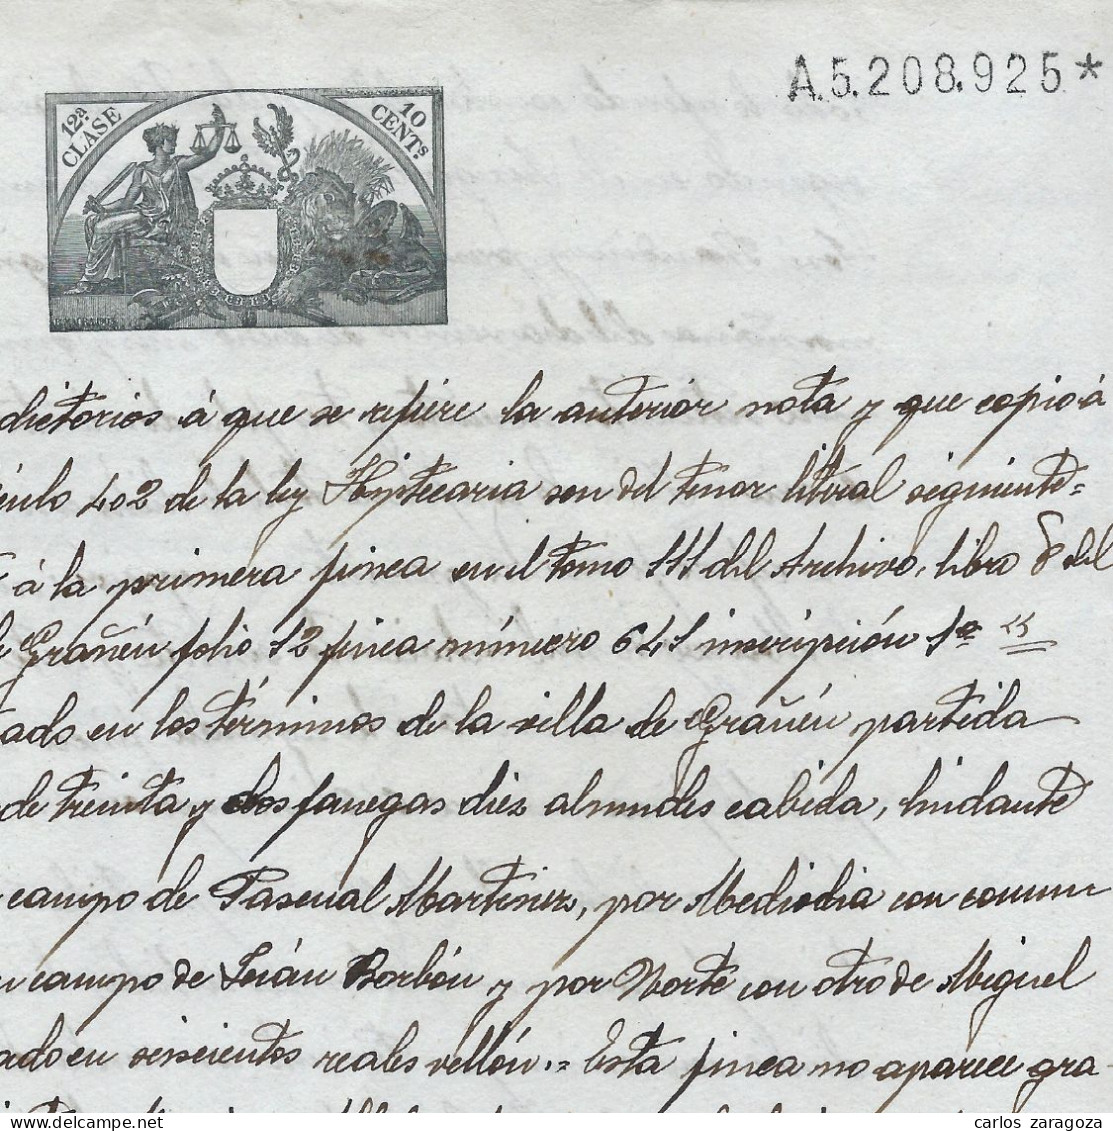 A.5.208.925*
12ª CLASE
10 CENTs
dictorios á que se refiere la anterior nota y que copio á
ículo 402 de la ley Hipotecaria son del tenor literal siguiente=
á la primera finca en el tomo 111 del Archivo, libro 8 del
Grañén folio 12 finca número 641 inscripción 1ª
tado en los términos de la villa de Grañén partida
de treinta y dos fanegas diez almudes cabida, lindante
campo de Pascual Martinez, por Mediodia con comun
campo de Borbón y por Norte con otro de Miguel
ado en seiscientos reales vellón.= Esta finca no aparece gra-
carlos zaragoza